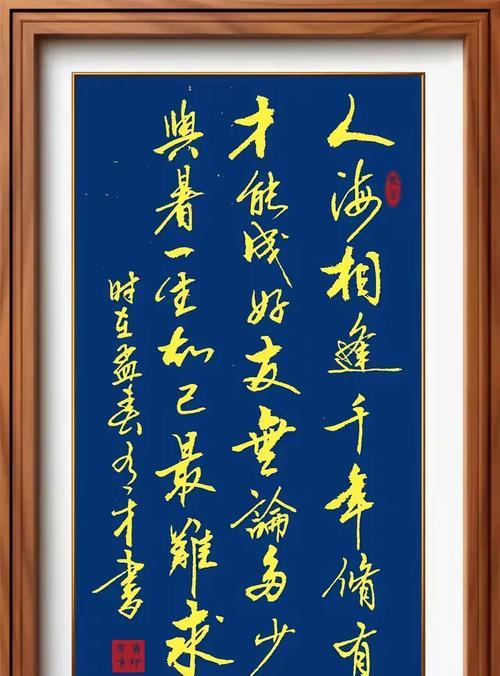 人海相逢千年脩有
才能成好友無論多少
與暑一生知己最難求
时在孟春才書